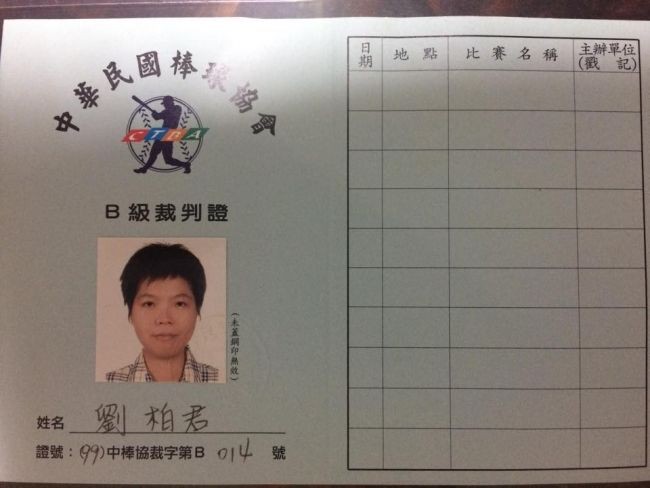 中華民國棒球協會
CTBA
B級裁判證
(未蓋鋼印無效)
姓名 劉柏君
證號:(99)中棒協裁字第B 014 號
日期 地點 比賽名稱 主辦單位(戳記)